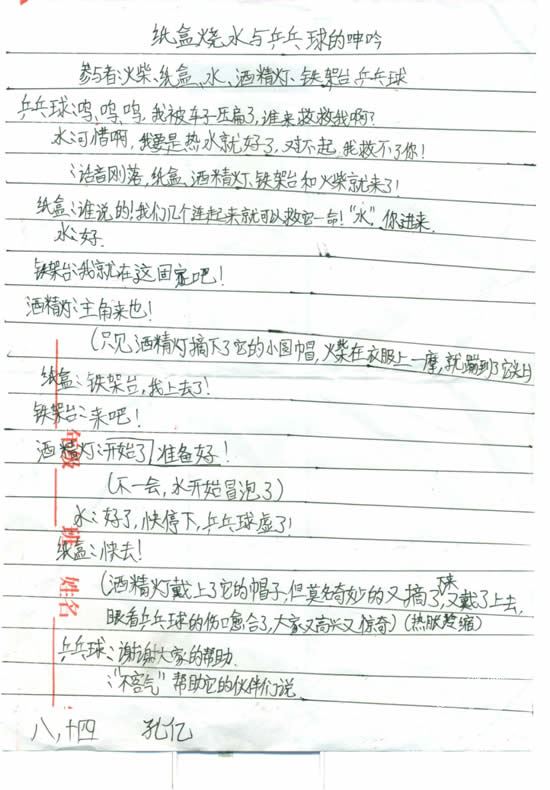 纸盒烧水与乒乓球的呻吟
参与者:火柴、纸盒、水、酒精灯、铁架台乒乓球
乒乓球:呜,呜,呜,我被车子压扁了,谁来救救我啊?
水:可惜啊,我要是热水就好了,对不起,我救不了你!
:话音刚落,纸盒、酒精灯、铁架台和火柴就来了!
纸盒:谁说的!我们几个连起来就可以救它一命!"水",你进来.
水:好.
铁架台:我就在这固定吧!
酒精灯:主角来也!
(只见酒精灯摘下了它的小圆帽,火柴在衣服上一摩,就蹦到了它头上
纸盒:铁架台,我上去了!
铁架台:来吧!
酒精灯:开始了准备好!
(不一会,水开始冒泡了)
水:好了,快停下,乒乓球虚了!
纸盒:快去!
(酒精灯戴上了它的帽子,但莫名奇妙的又摘了下来,又戴了上去,
眼看乒乓球的伤口愈合了,大家又高兴又惊奇)(热胀冷缩)
乒乓球:谢谢大家的帮助.
:"不客气"帮助它的伙伴们说.
八,十四 孔亿
年级 班 姓名